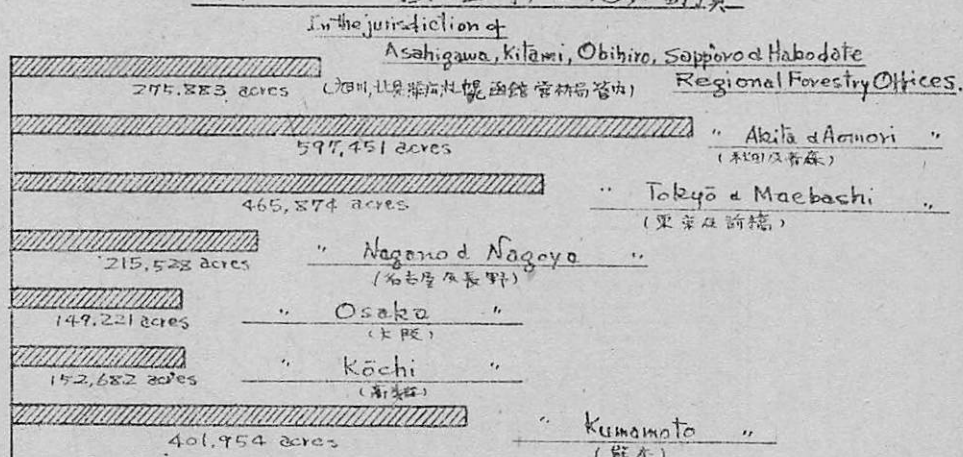 In the jurisdiction of
Asahigawa, Kitami, Obihiro, Sapporo & Habodate
Regional Forestry Offices.
275.883 acres (旭川,北見,帯広,札幌,函館営林局管内)
597,451 acres " Akita & Aomori "
(秋田及青森)
465,874 acres " Tokyō & Maebashi "
(東京及前橋)
215,528 acres " Nagano & Nagoya "
(名古屋及長野)
149.221 acres " Osaka "
(大阪)
152,682 acres " Kōchi "
(高知)
401,954 acres " Kumamoto "
(熊本)